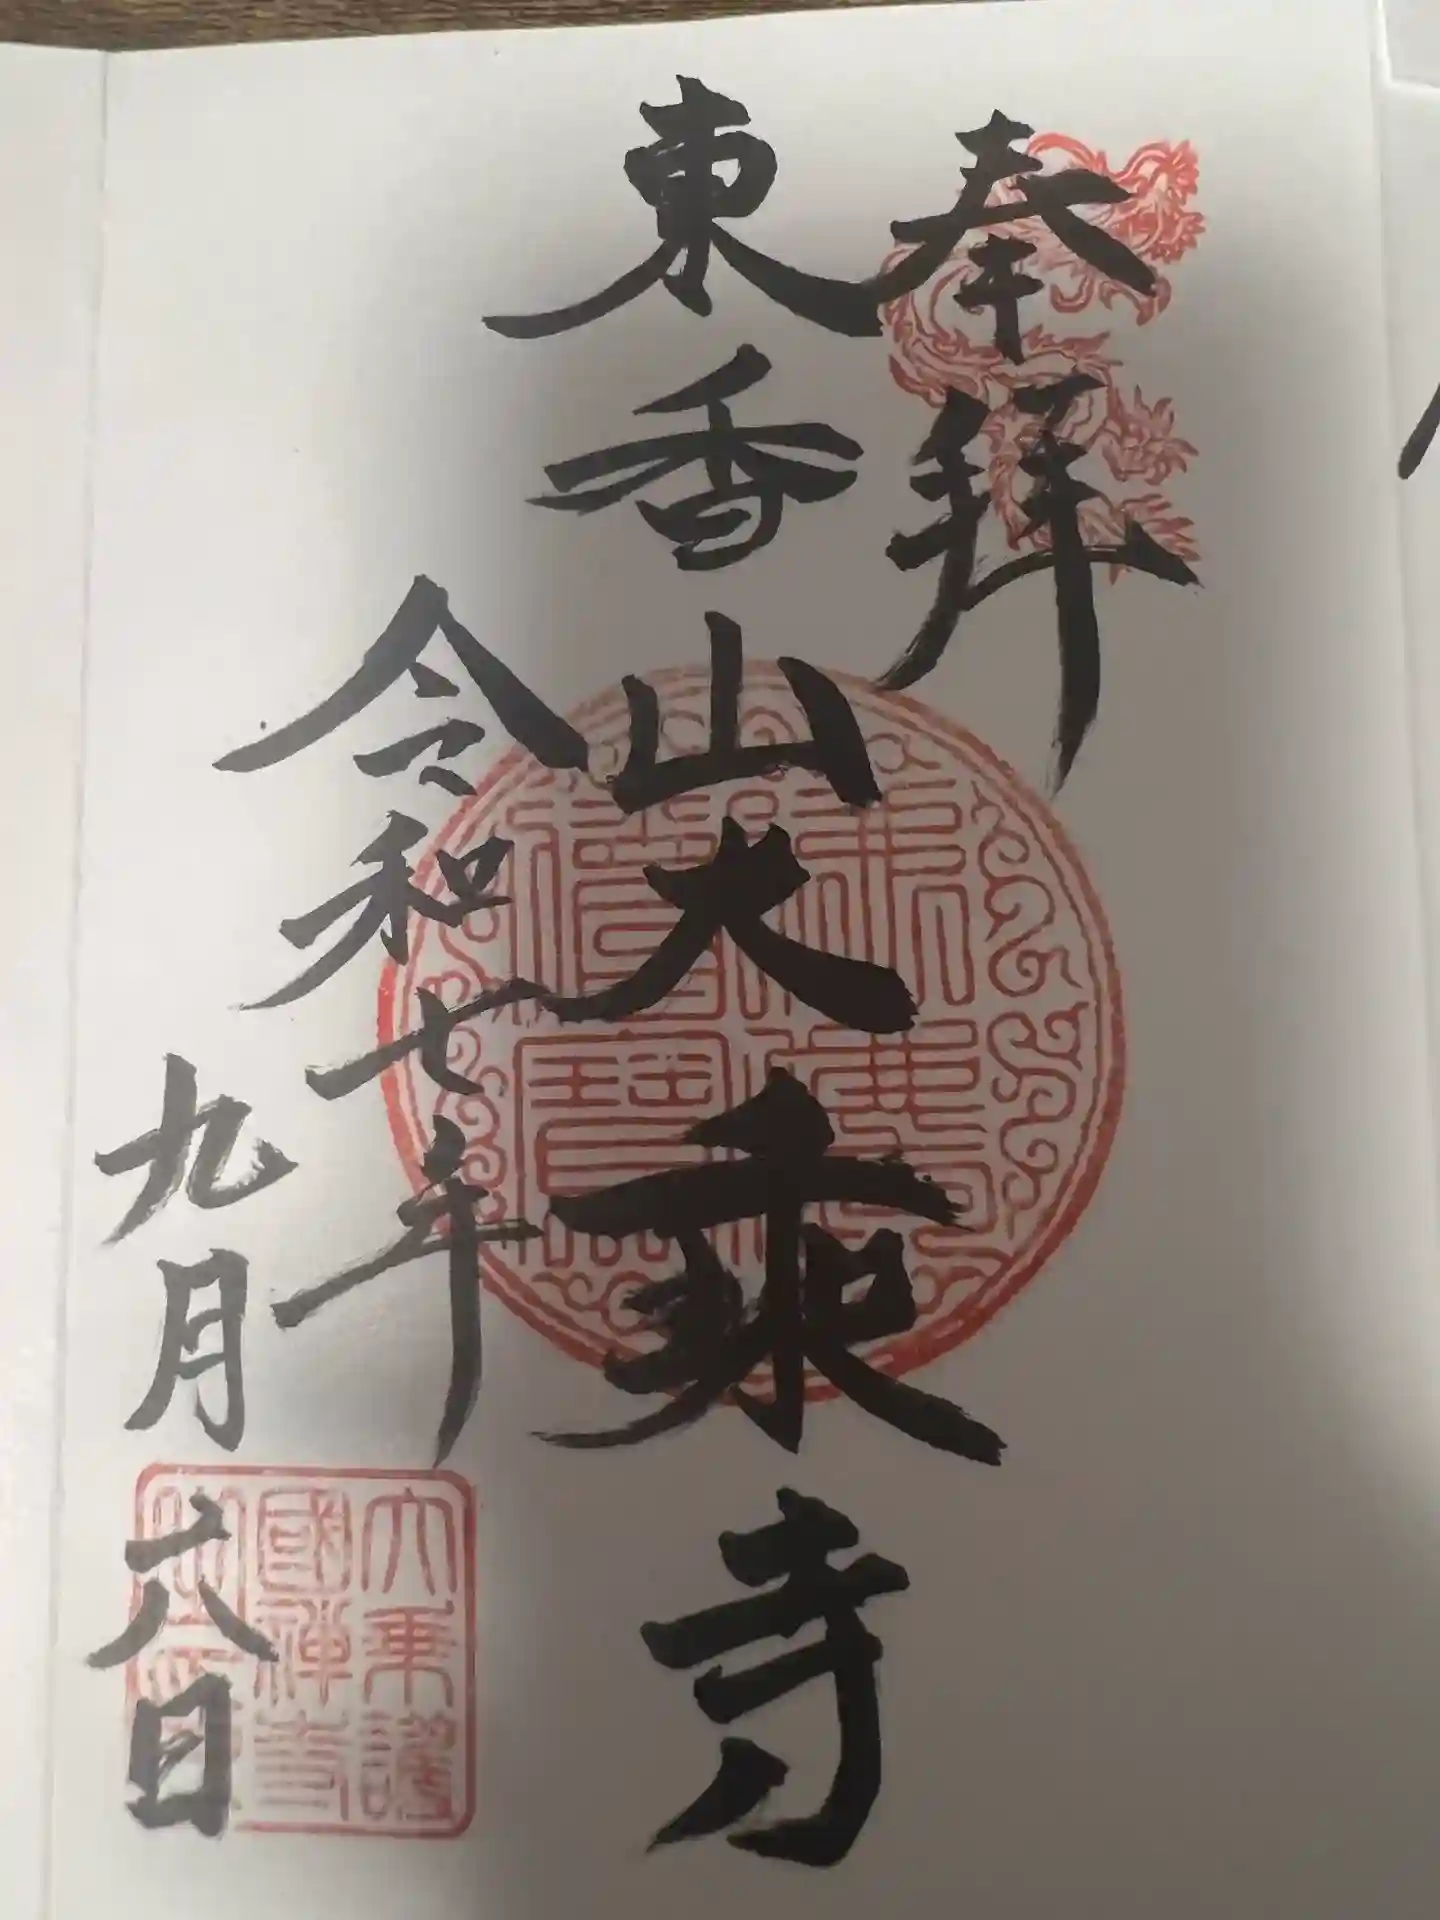 奉拜
東香山大乘寺
令和七年
九月六日
大乗護
國禅寺